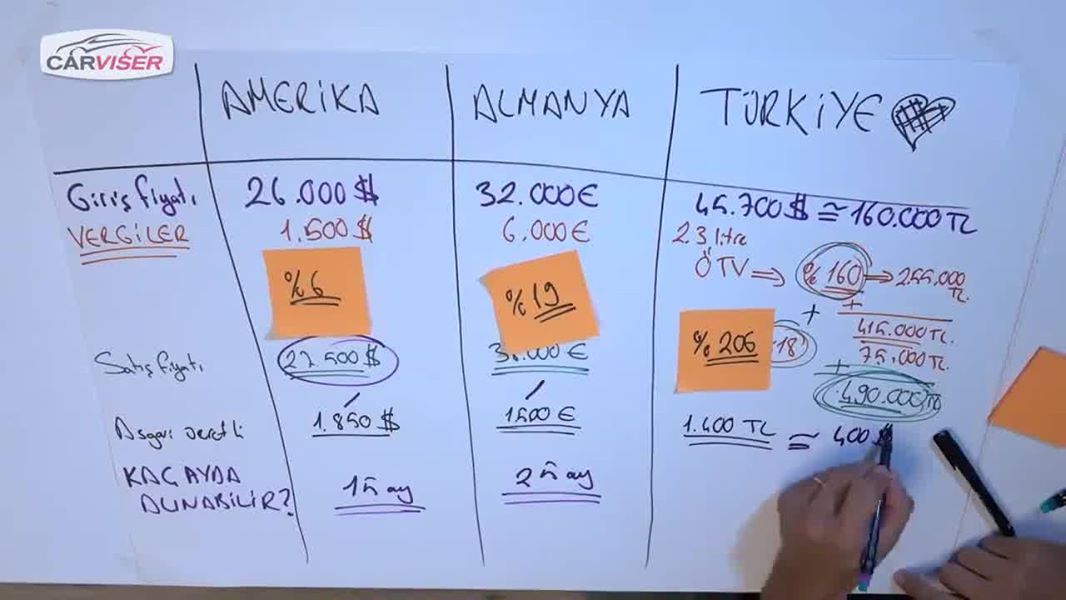 CARVISER
AMERİKA ALMANYA TÜRKİYE
Giriş fiyatı 26.000 $ 32.000 € 45.700 $ ≅ 160.000 TL
VERGİLER 1.500 $ 6.000 €
2.3 litre
ÖTV ⇒ % 160 → 255.000 TL
% 6 % 19
+
415.000 TL.
% 206 18 75.000 TL.
Satış fiyatı 27.500 $ 38.000 €
+
490.000 TL
Asgari ücretli 1.850 $ 1500 € 1.400 TL ≅ 400 $
KAÇ AYDA 15 ay 25 ay
ALINABİLİR?